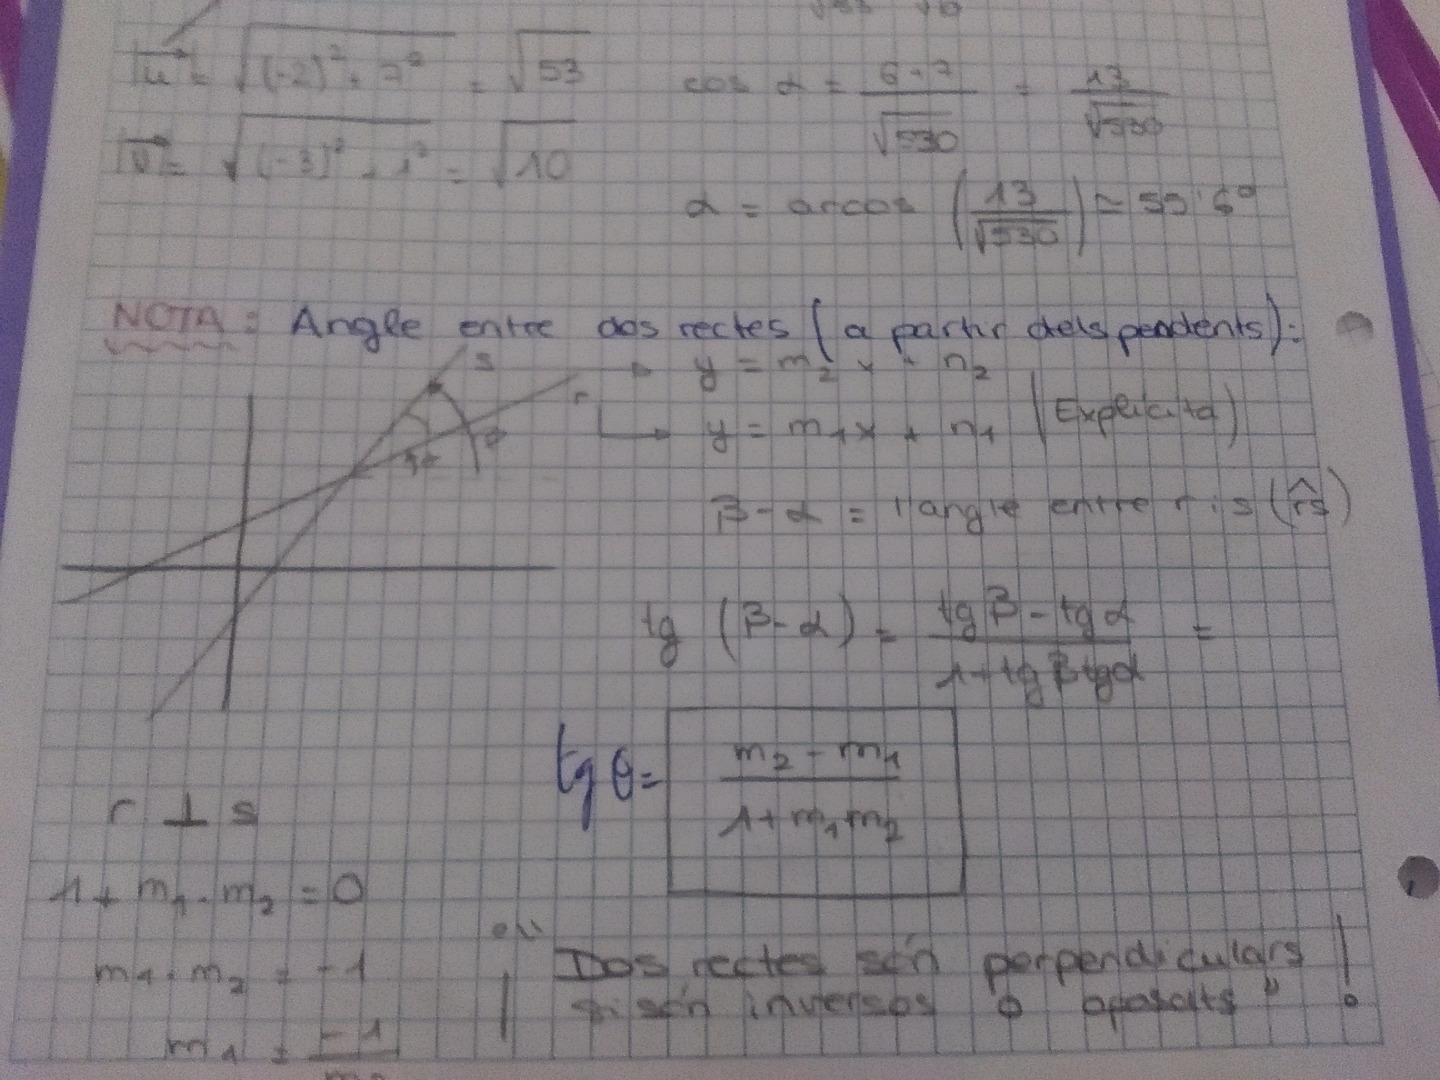 |u⃗| = √((-2)² + 7²) = √53
cos α = (6+7)/√530 = 13/√530
|v⃗| = √((-3)² + 1²) = √10
α = arcos (13/√530) ≈ 55'6º
NOTA: Angle entre dos rectes (a partir dels pendents):
s
y = m₂x + n₂
r
y = m₁x + n₁ (Explícita)
β-α = l'angle entre r i s (r̂s)
tg (β-α) = (tgβ - tgα)/(1+tgβ tgα) =
tg θ = (m₂ - m₁)/(1+m₁m₂)
r ⊥ s
1 + m₁·m₂ = 0
m₁·m₂ = -1
"Dos rectes són perpendiculars
si són inversos o oposats" !
m₁ = -1/m₂